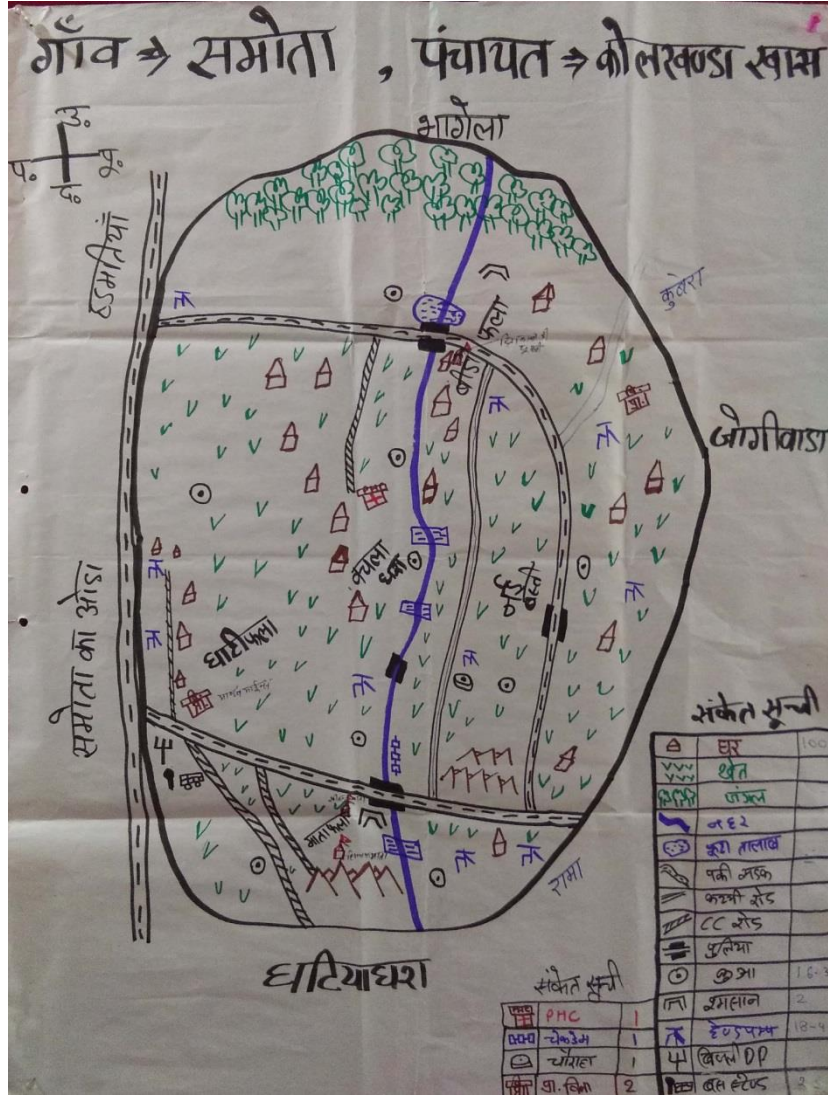 गाँव ⇒ समोता , पंचायत ⇒ कोलखण्डा खास
उ.
प. पू.
द.
भागेला
हडमतियाँ
कुबेरा
बीड फला
जोगीवाडा
समोता का ओडा
घाटीफला
बस्ती
माताफला
रामा
घटियाघरा
संकेत सूची
घर 100
खेत
जंगल
नहर
तालाब
पकी सडक
कच्ची रोड
CC रोड
पुलिया
कुआ 16-
श्मसान 2
हेण्डपम्प 18-
DP
बस स्टेण्ड
संकेत सूची
PHC 1
चेकडेम 1
चौराहा 1
प्रा. 2